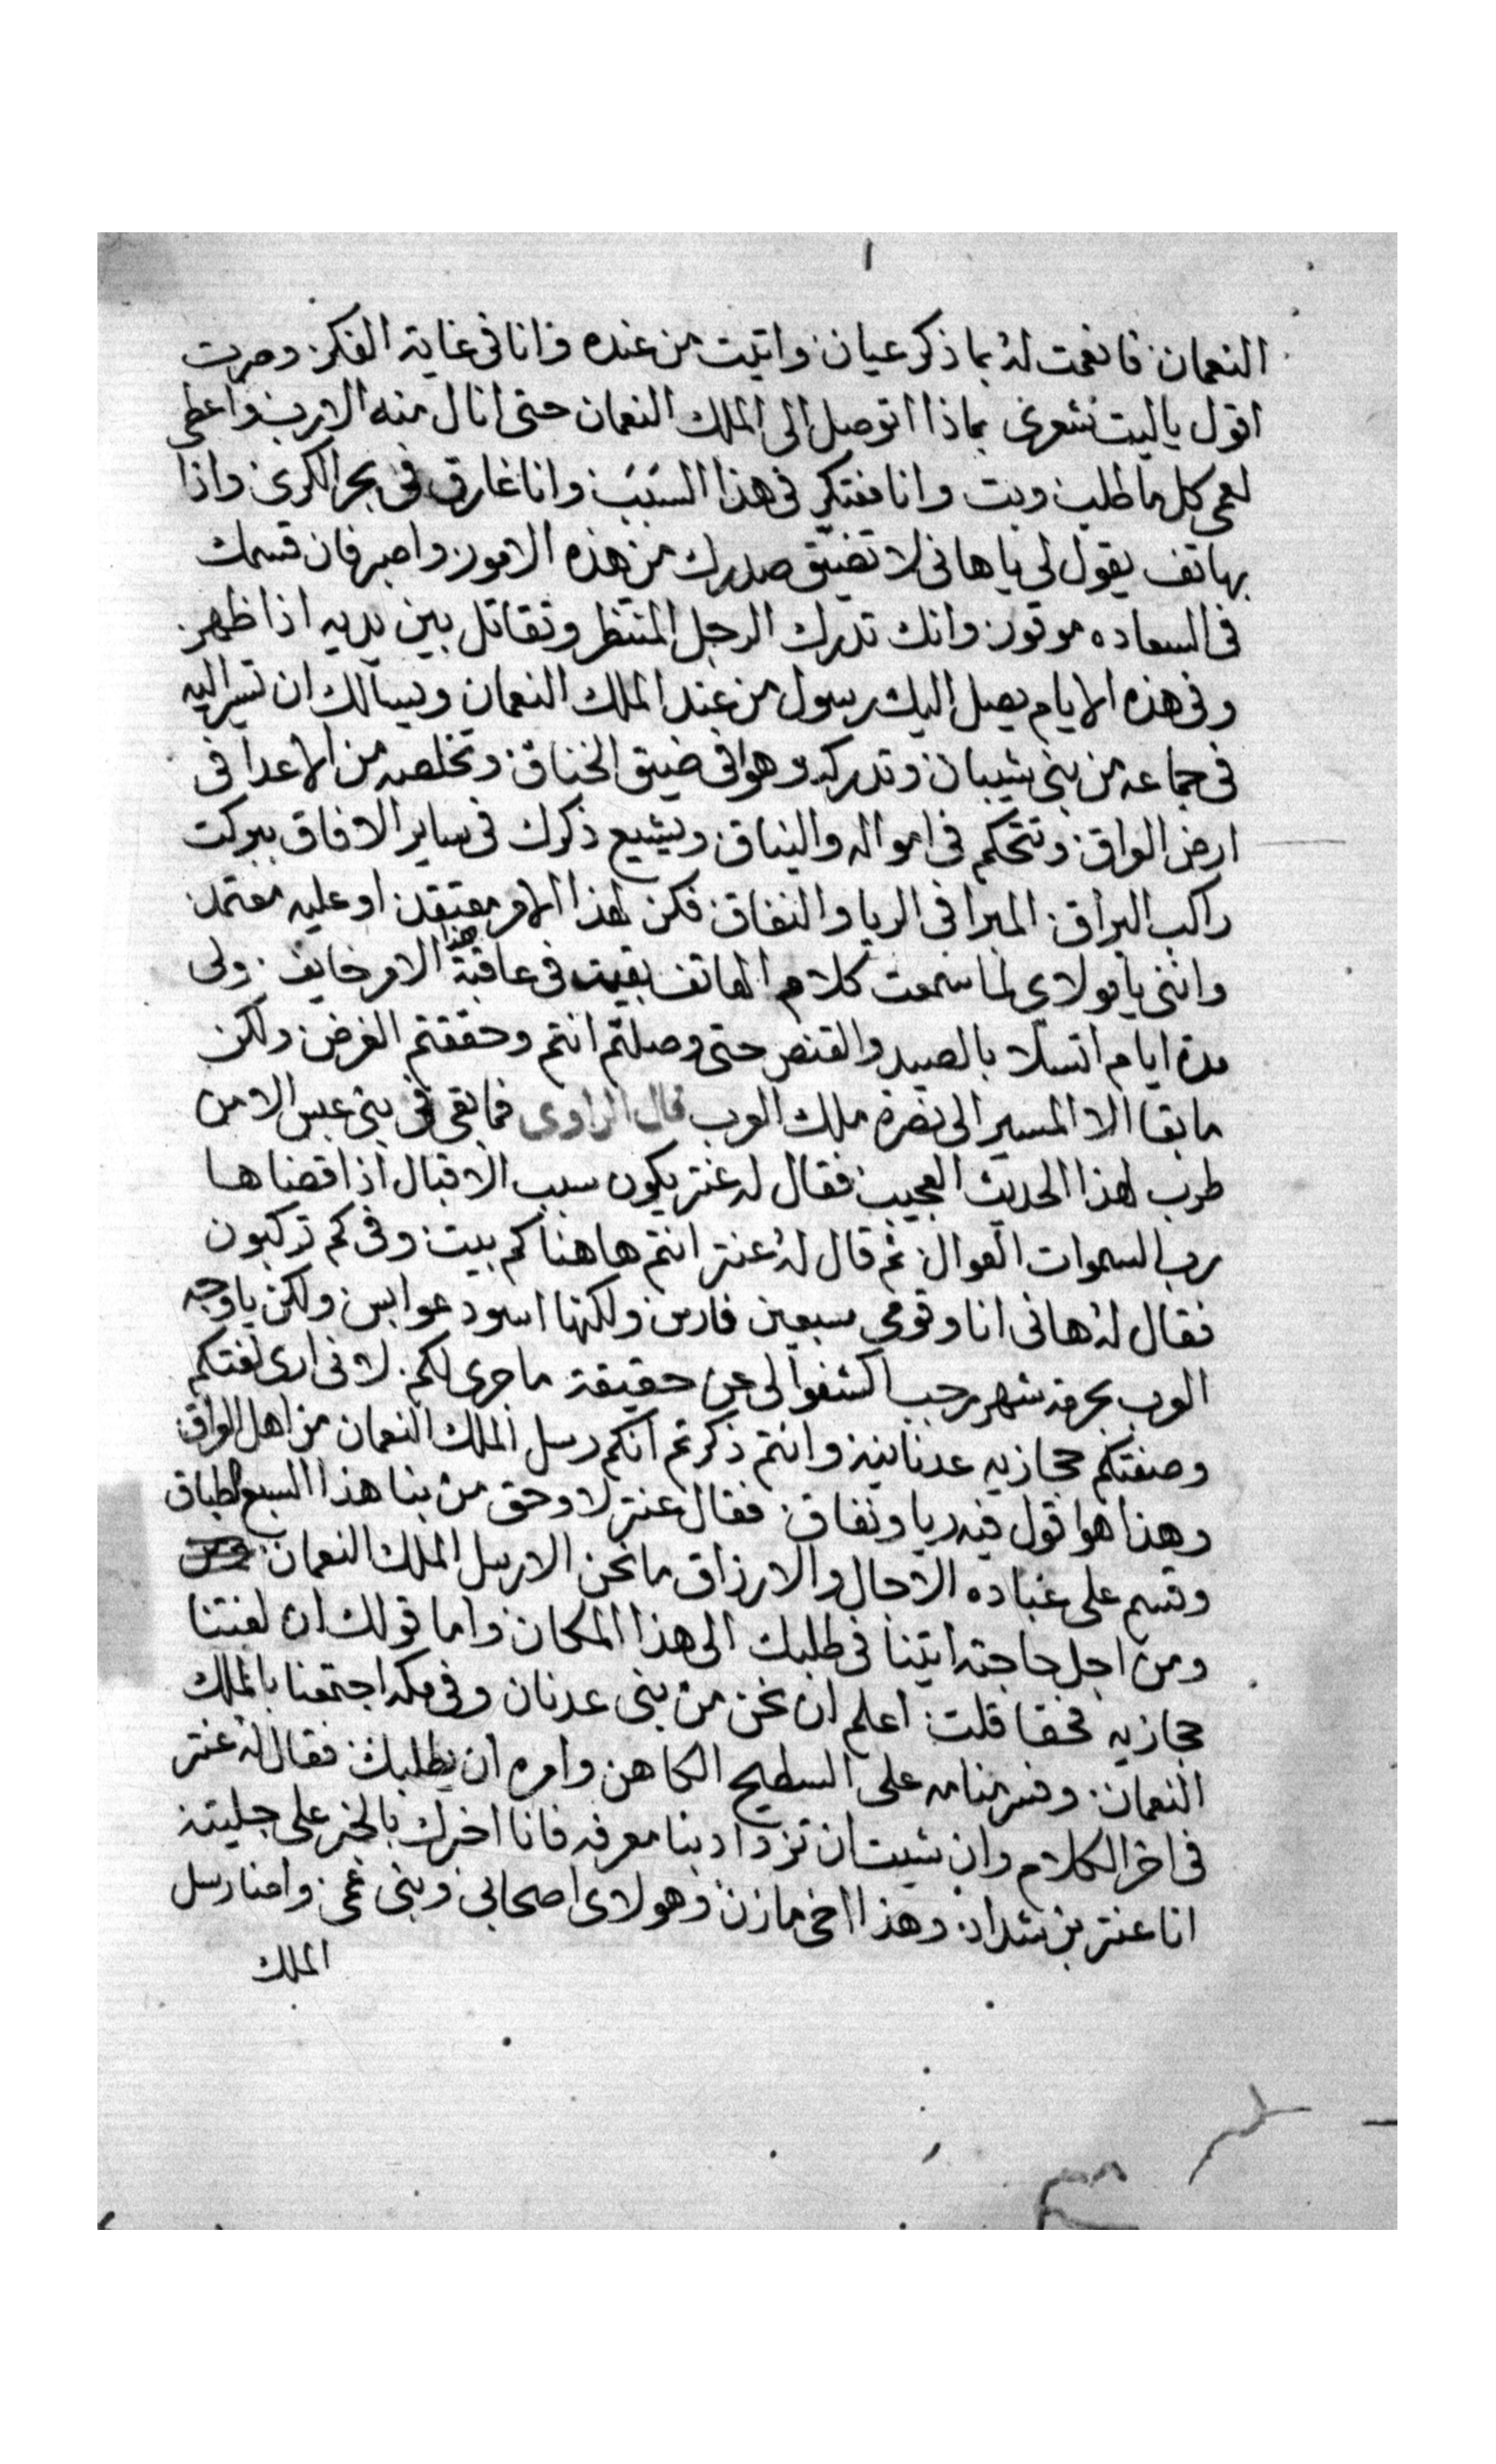 النعمان فانعمت له بما ذكر عيان واتيت من عنده وانا فى غاية الفكر وصرت
اقول ياليت شعرى بماذا اتوصل الى الملك النعمان حتى انال منه الارب واعطى
لعمى كل ما طلب وبت وانا مفتكر فى هذا السبب وانا غارق فى بحر الكرى واذا
بهاتف يقول لى ياهانى لا تضيق صدرك من هذه الامور واصبر فان قسمك
فى السعاده موفور وانك تدرك الرجل المنتظر وتقاتل بين يديه اذا ظهر
وفى هذه الايام يصل اليك رسول من عند الملك النعمان ويسالك ان تسير اليه
فى جماعه من بنى شيبان وتدركه وهوا فى ضيق الخناق وتخلصه من الاعدا فى
ارض العراق وتتحكم فى امواله والنياق ويشيع ذكرك فى ساير الافاق ببركت
راكب البراق المبرا فى الريا والنفاق فكن لهذا الامر معتقدن او عليه معتمدن
واننى يا مولاى لما سمعت كلام الهاتف بقيت فى عاقبة هذا الامر خايف ولى
مدة ايام اتسلا بالصيد والقنص حتى وصلتم انتم وحققتم الغرض ولكن
ما بقا الا المسير الى نصرة ملك العرب قال الراوى فما بقى فى بنى عبس الا من
طرب لهذا الحديث العجيب فقال له عنتر يكون سبب الاقبال اذا قضاها
رب السموات العوال ثم قال له عنتر انتم هاهنا كم بيت وفى كم تركبون
فقال له هانى انا وقومى سبعين فارس ولكنها اسود عوابس ولكن يا وجه
العرب بحرمة شهر رجب اكشفوا لى عن حقيقة ما جرى لكم لانى ارى لغتكم
وصفتكم حجازيه عدنانية وانتم ذكرتم انكم رسل الملك النعمان من اهل العراق
وهذا هوا قول فيه ريا ونفاق فقال عنتر لا وحق من بنا هذا السبع الطباق
وقسم على عباده الاجال والارزاق ما نحن الا رسل الملك النعمان
ومن اجل حاجته اتينا فى طلبك الى هذا المكان واما قولك ان لغتنا
حجازيه فحقا قلت اعلم ان نحن من بنى عدنان وفى مكه اجتمعنا بالملك
النعمان وفسر منامه على السطيح الكاهن وامره ان يطلبك فقال له عنتر
فى اخر الكلام وان شيت ان تزداد بنا معرفه فانا اخبرك بالخبر على جليته
انا عنتر بن شداد وهذا اخى مازن وهولاى اصحابى وبنى عمى واحنا رسل
الملك